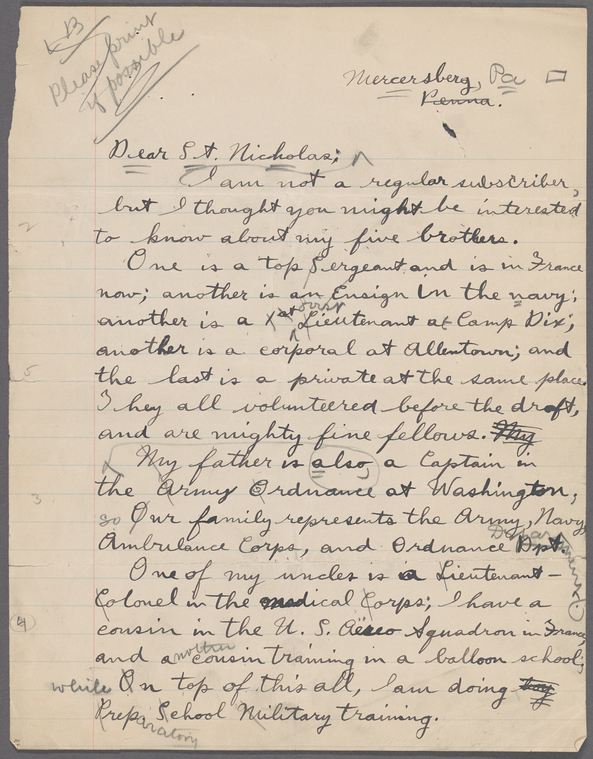 B
Please print
if possible
Mercersberg, Pa
Penna.
Dear St. Nicholas;
I am not a regular subscriber,
but I thought you might be interested
to know about my five brothers.
One is a top Sergeant and is in France
now; another is an Ensign In the navy;
another is a first Lieutenant at Camp Dix;
another is a corporal at Allentown; and
the last is a private at the same place.
They all volunteered before the draft,
and are mighty fine fellows. My
My father is also a Captain in
the Army Ordnance at Washington,
so Our family represents the Army, Navy
Ambulance Corps, and Ordnance Dpt. Department
One of my uncles is a Lieutenant-
Colonel in the medical Corps; I have a
cousin in the U. S. Aero Squadron in France,
and another cousin training in a balloon school;
while On top of this all, I am doing
Preparatory School Military training.
2
5
3
4